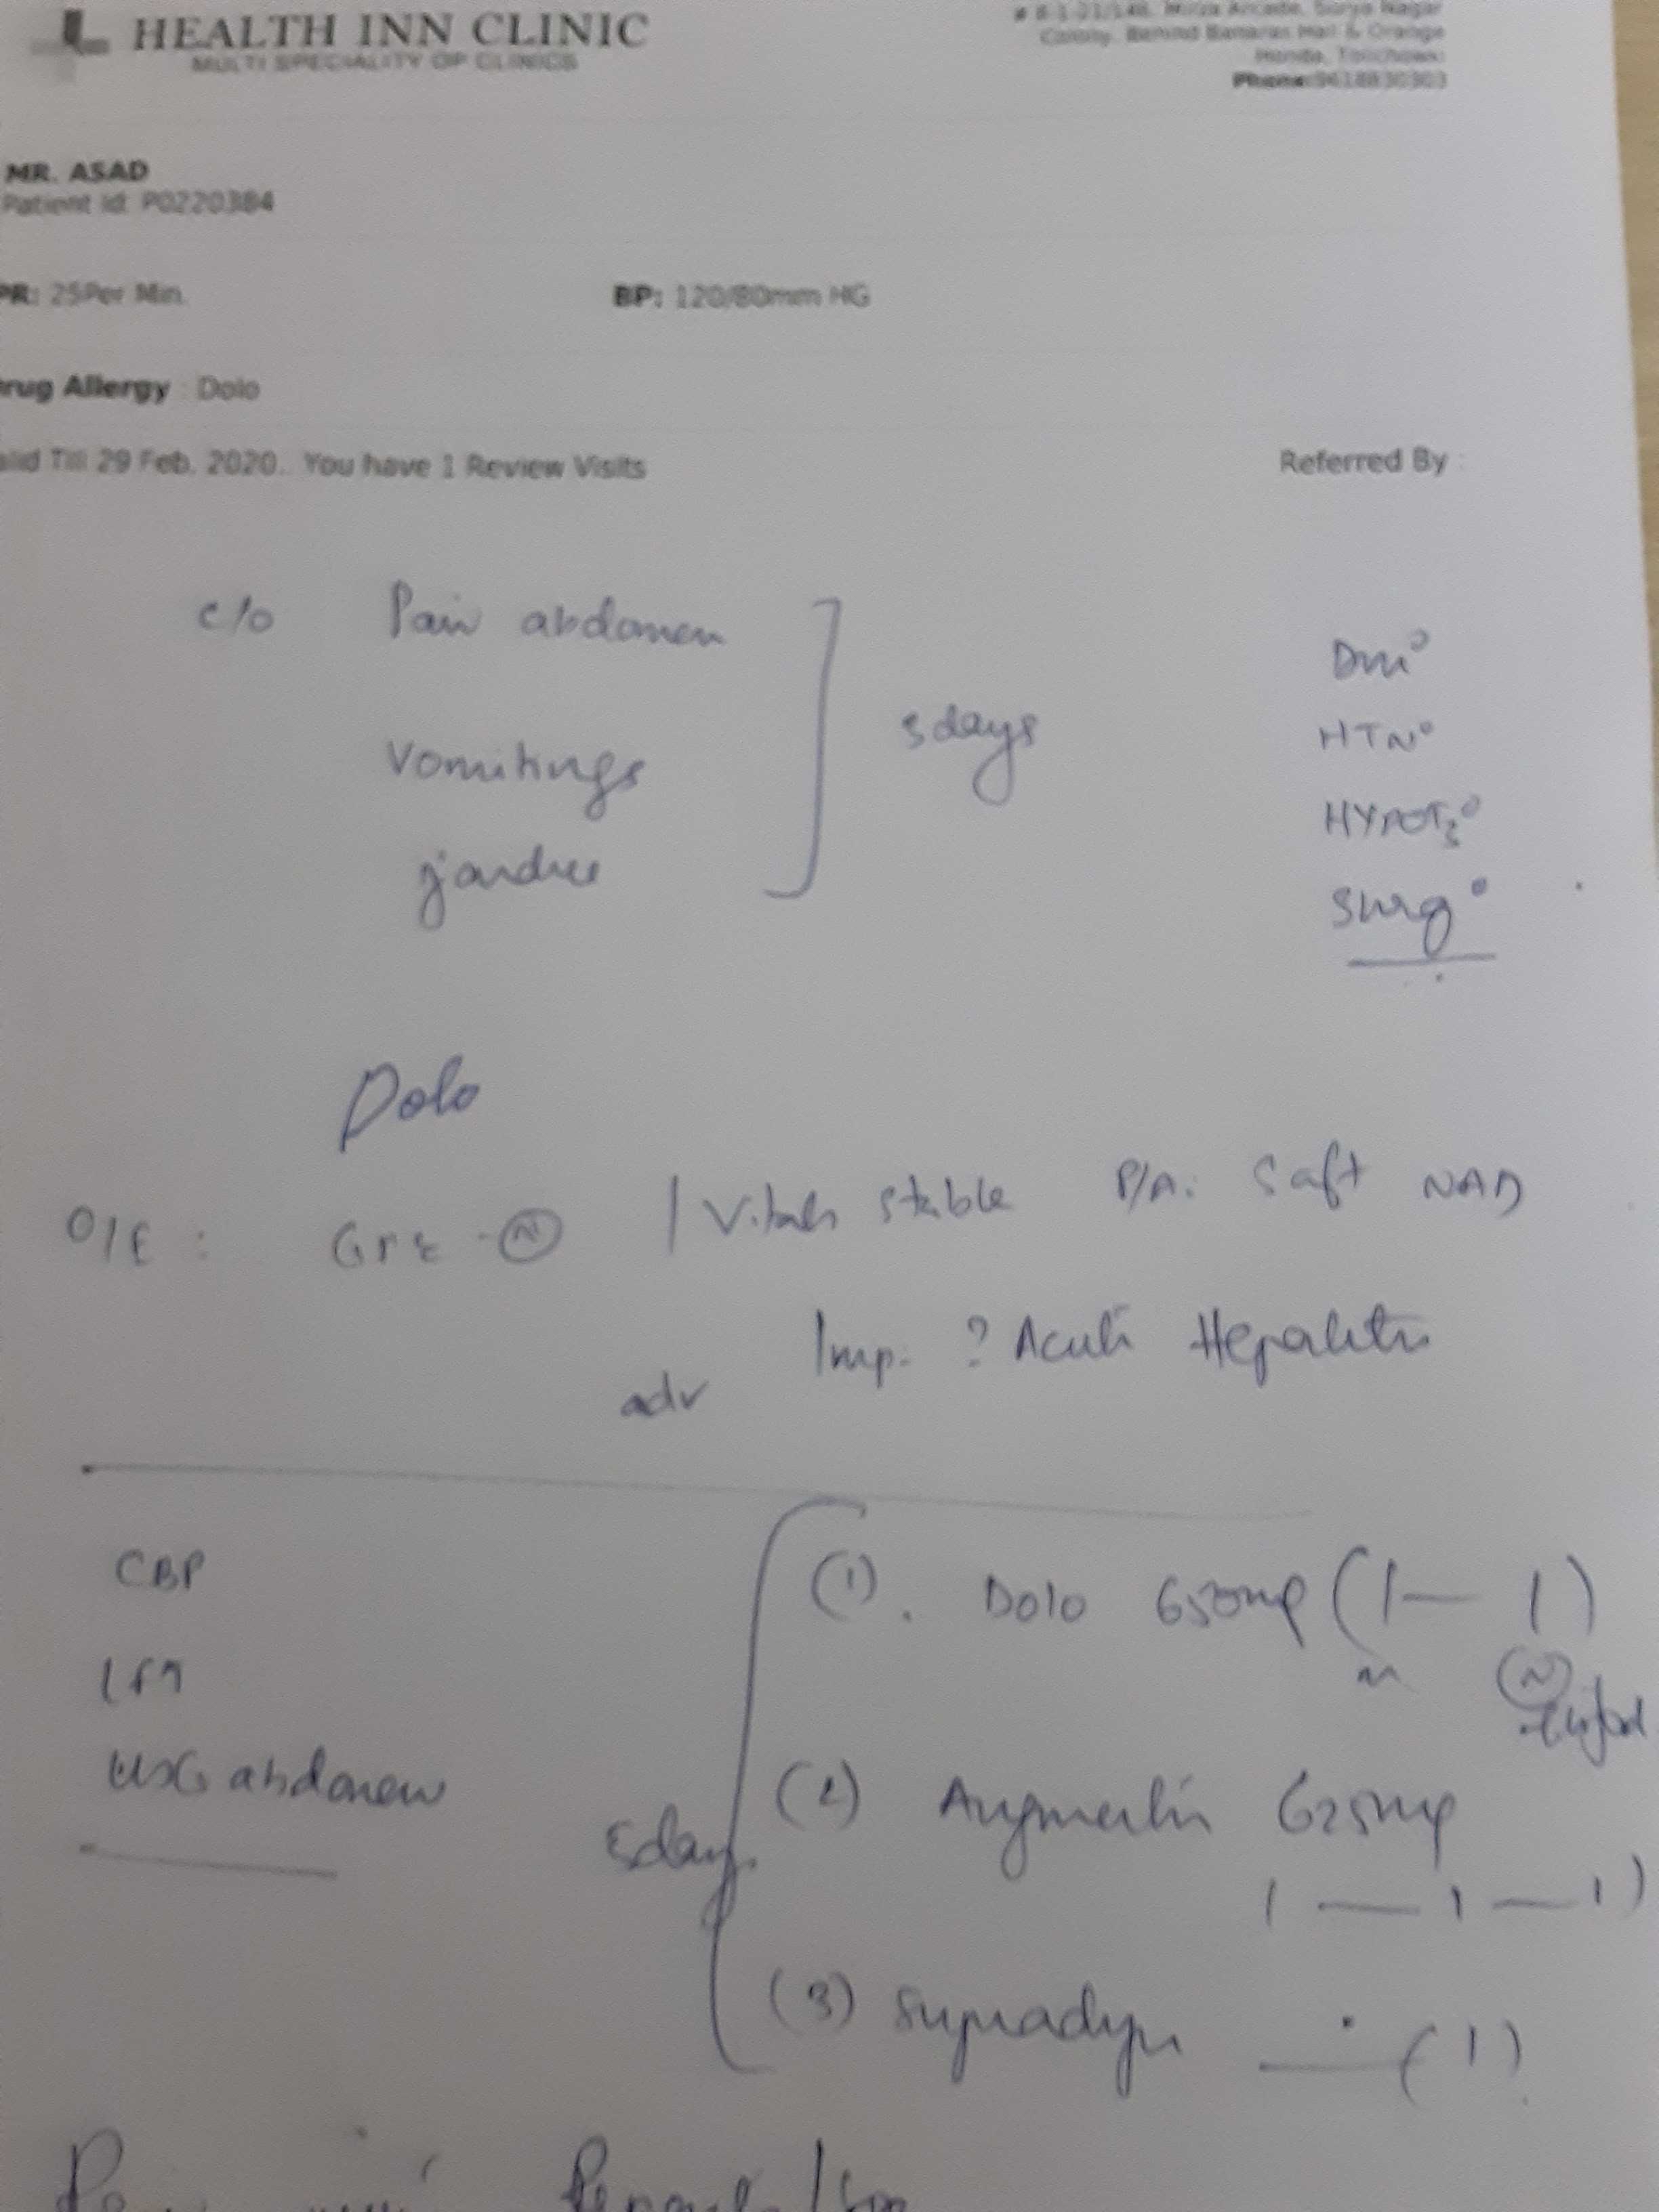 HEALTH INN CLINIC
MULTI SPECIALITY OP CLINICS
# 8-1-21/148, Mirza Arcade, Surya Nagar
Colony, Behind Banaras Hall & Orange
Honda, Tolichowki
Phone:9618830303
MR. ASAD
Patient Id: P0220384
PR: 25Per Min.
BP: 120/80mm HG
rug Allergy : Dolo
alid Till 29 Feb. 2020. You have 1 Review Visits
Referred By :
c/o Pain abdomen
Vomitings
3days
DM°
HTN°
Surg°
Dolo
O/E : (N) / Vitals stable P/A: Soft NAD
Imp. ? Acute Hepatitis
adv
CBP
LFT
USG abdomen
5days
(1). Dolo 650mg (1— 1)
(2) Augmentin 625mg
1 — 1 — 1)
(3) Supradyn — (1)